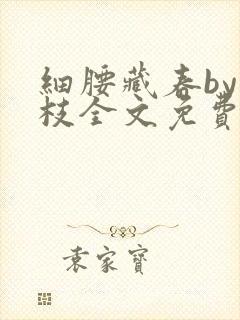 細腰藏春by
枝全文免費
袁家寶